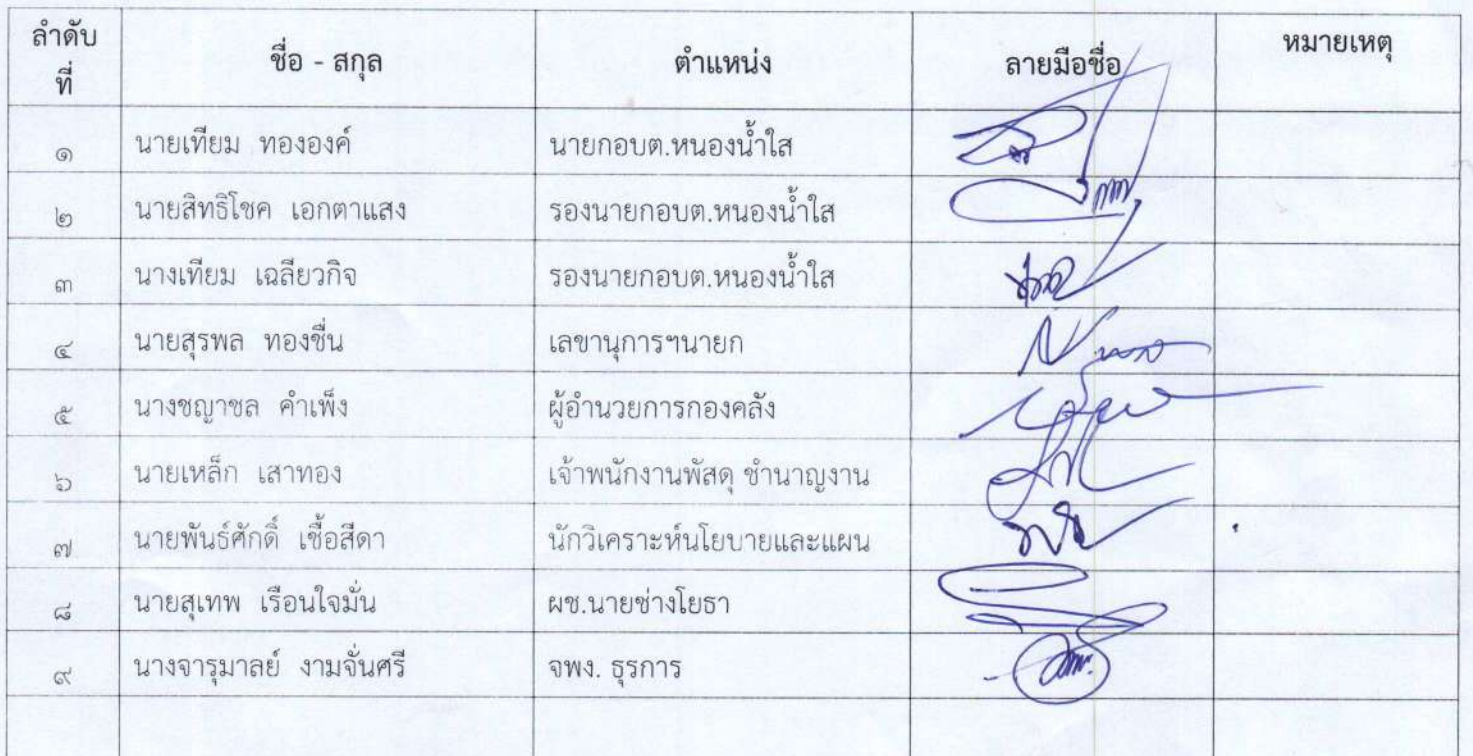 ลำดับ
ที่
ชื่อ - สกุล ตำแหน่ง ลายมือชื่อ หมายเหตุ
๑ นายเทียม ทององค์ นายกอบต.หนองน้ำใส
๒ นายสิทธิโชค เอกตาแสง รองนายกอบต.หนองน้ำใส
๓ นางเทียม เฉลียวกิจ รองนายกอบต.หนองน้ำใส
๔ นายสุรพล ทองชื่น เลขานุการฯนายก
๕ นางชญาชล คำเพ็ง ผู้อำนวยการกองคลัง
๖ นายเหล็ก เสาทอง เจ้าพนักงานพัสดุ ชำนาญงาน
๗ นายพันธ์ศักดิ์ เชื้อสีดา นักวิเคราะห์นโยบายและแผน
๘ นายสุเทพ เรือนใจมั่น ผช.นายช่างโยธา
๙ นางจารุมาลย์ งามจั่นศรี จพง. ธุรการ